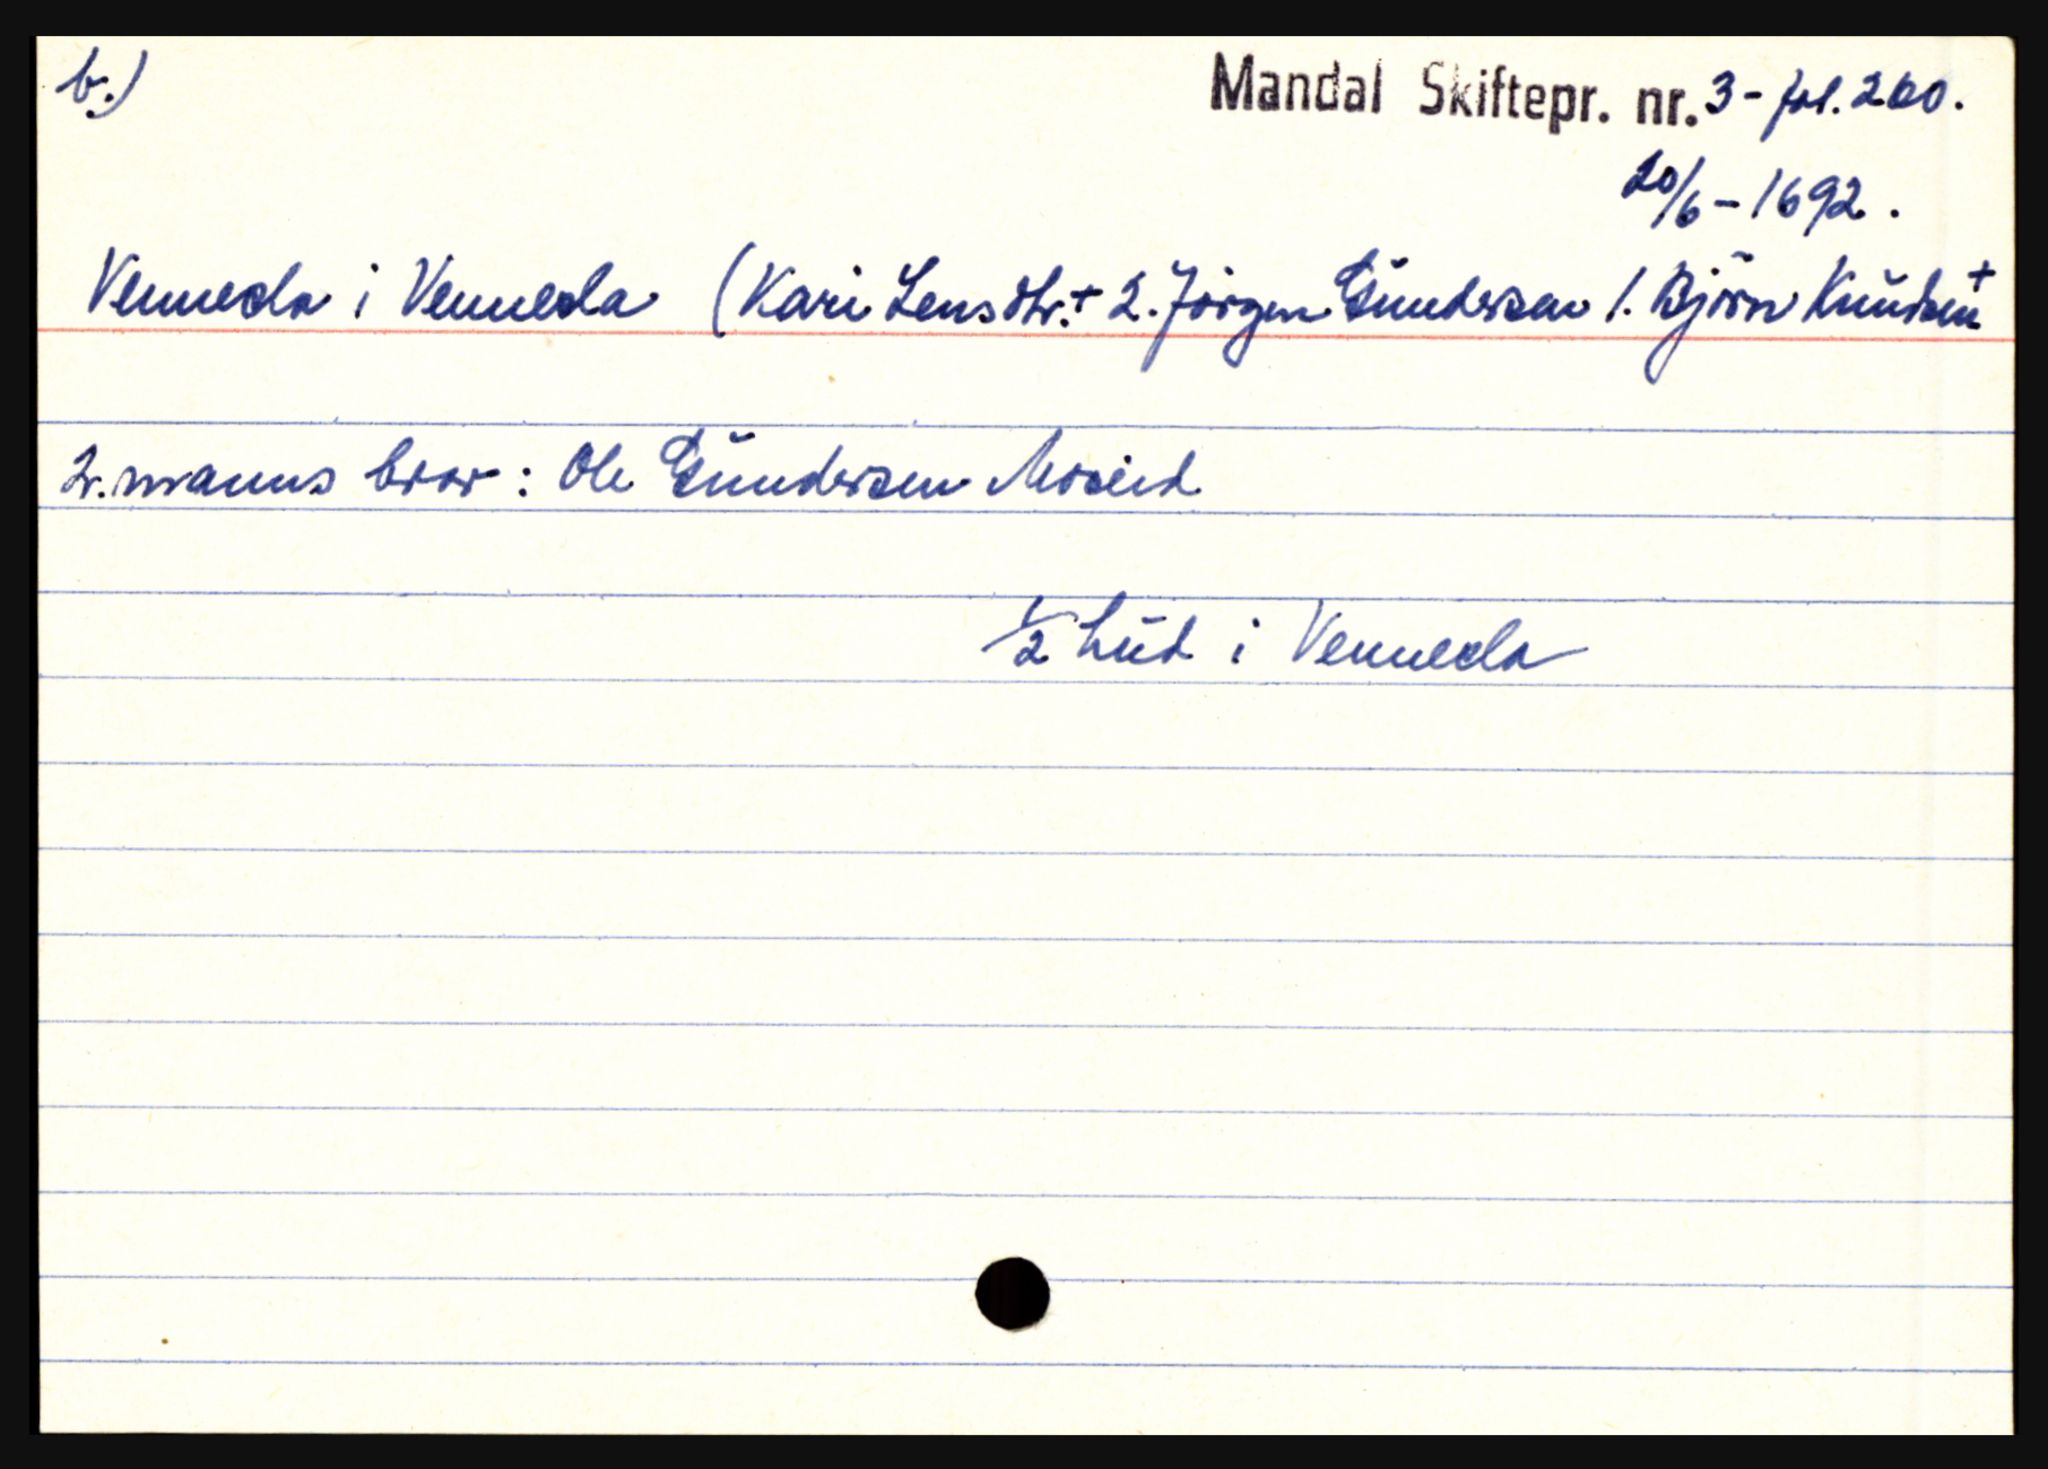 b.)
Mandal Skiftepr. nr. 3 - fol. 260.
20/6 - 1692.
Vennesla i Vennesla (Kari Lensdtr.+ 2. Jörgen Gundersen 1. Björn Knudsen+
2. manns bror: Ole Gundersen Moseid
1/2 hud i Vennesla